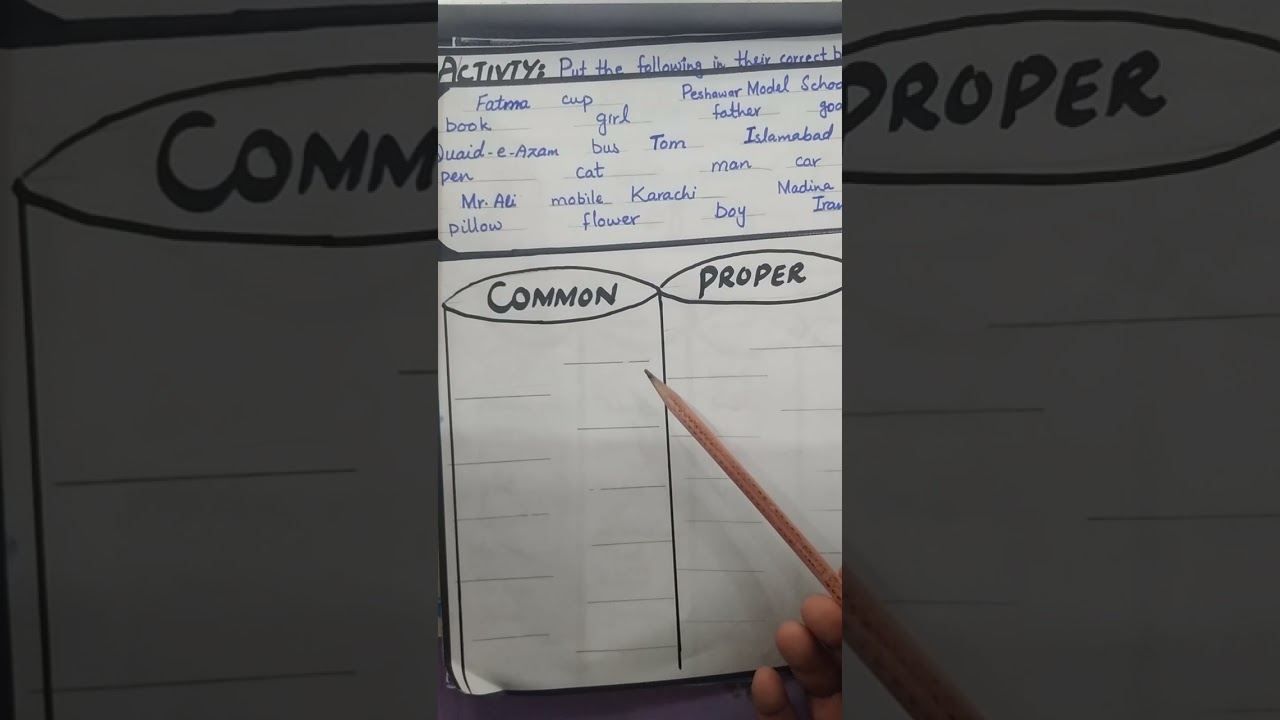 ACTIVTY: Put the following in their correct b
Fatma cup Peshawar Model Schoo
book girl father goa
Quaid-e-Azam bus Tom Islamabad
pen cat man car
Mr. Ali mobile Karachi Madina
pillow flower boy Iran
COMMON PROPER